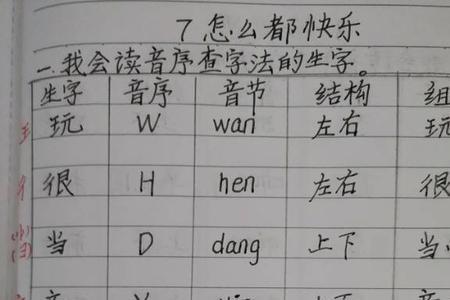 7 怎么都快乐
一.我会读音序查字法的生字。
生字 音序 音节 结构 组
玩 W wan 左右 玩
很 H hen 左右 很
当 D dang 上下 当